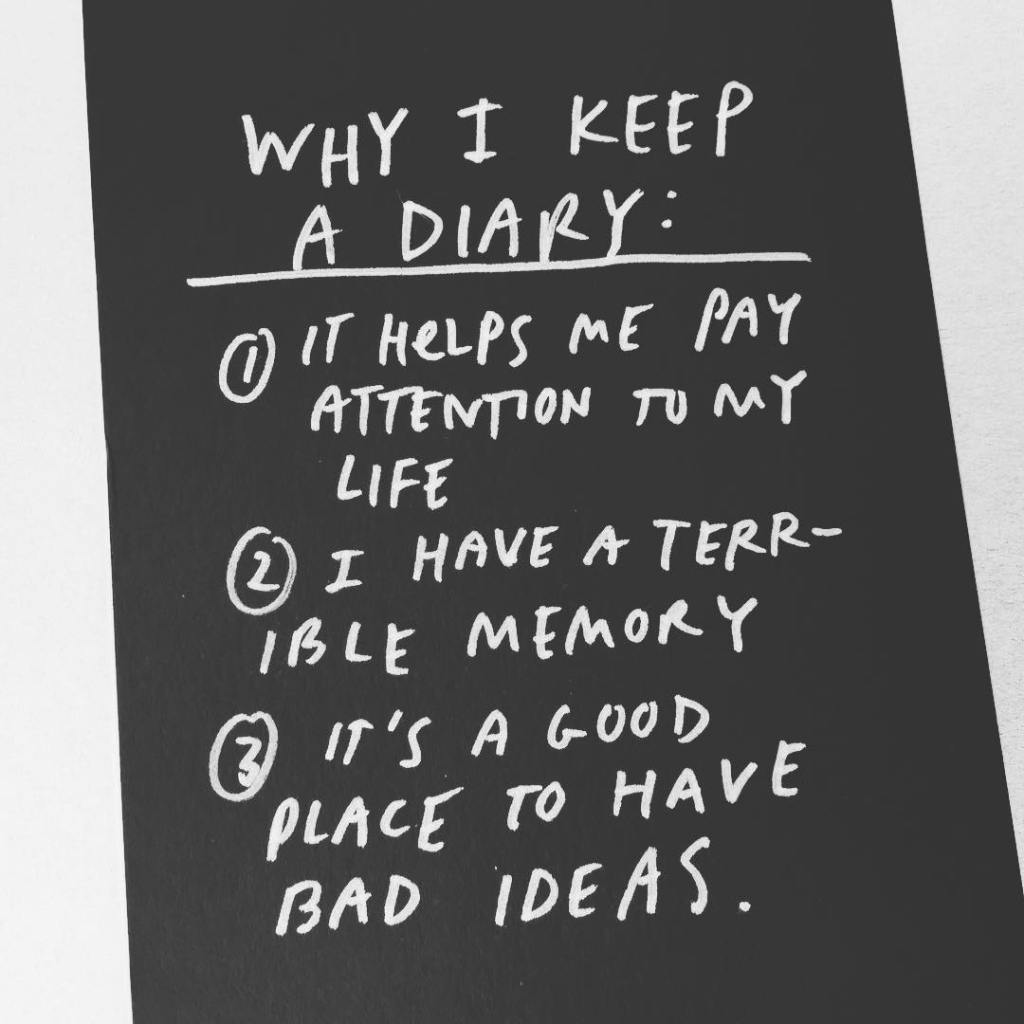 WHY I KEEP
A DIARY:
① IT HeLPS ME PAY
ATTENTION TO MY
LIFE
② I HAVE A TERR-
IBLE MEMORY
③ IT'S A GOOD
PLACE TO HAVE
BAD IDEAS.